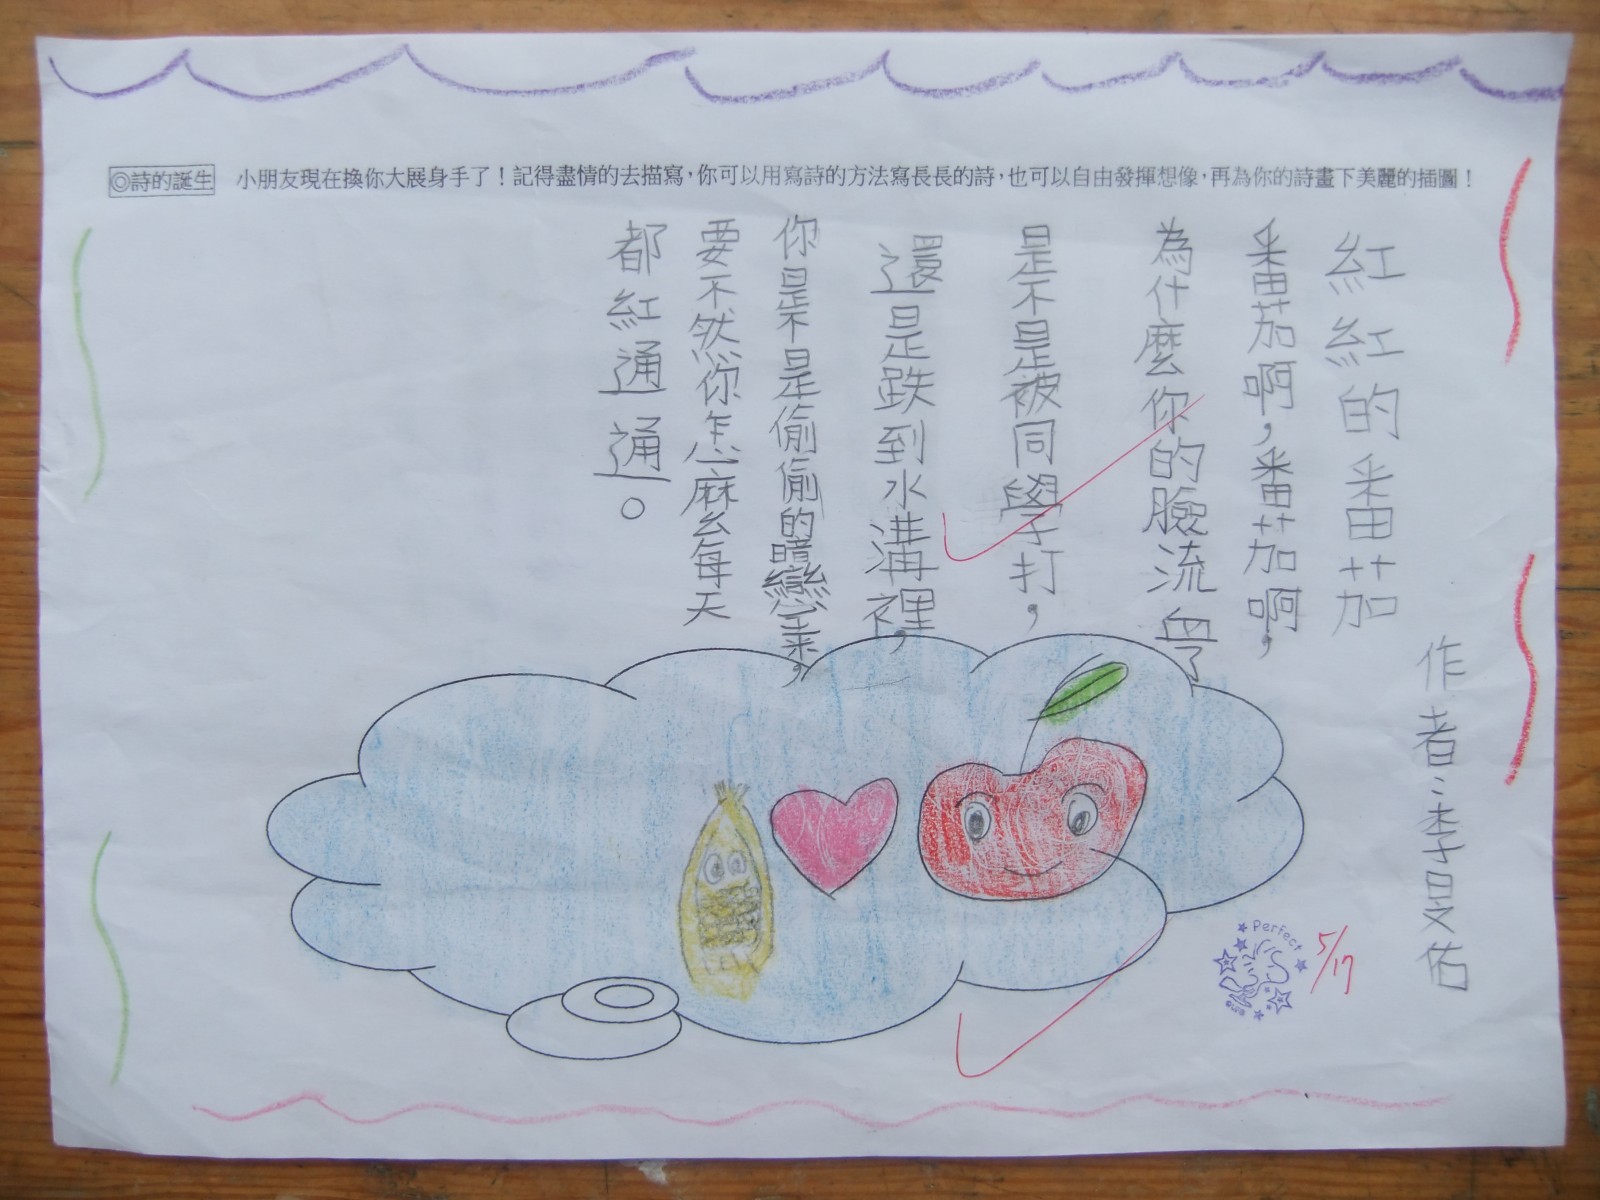 ◎詩的誕生 小朋友現在換你大展身手了！記得盡情的去描寫，你可以用寫詩的方法寫長長的詩，也可以自由發揮想像，再為你的詩畫下美麗的插圖！
作者：李旻佑
紅紅的番茄
番茄啊，番茄啊，
為什麼你的臉流血了
是不是被同學打，
還是跌到水溝裡，
你是不是偷偷的暗戀玉米，
要不然你怎麼每天
都紅通通。
Perfect
5/17